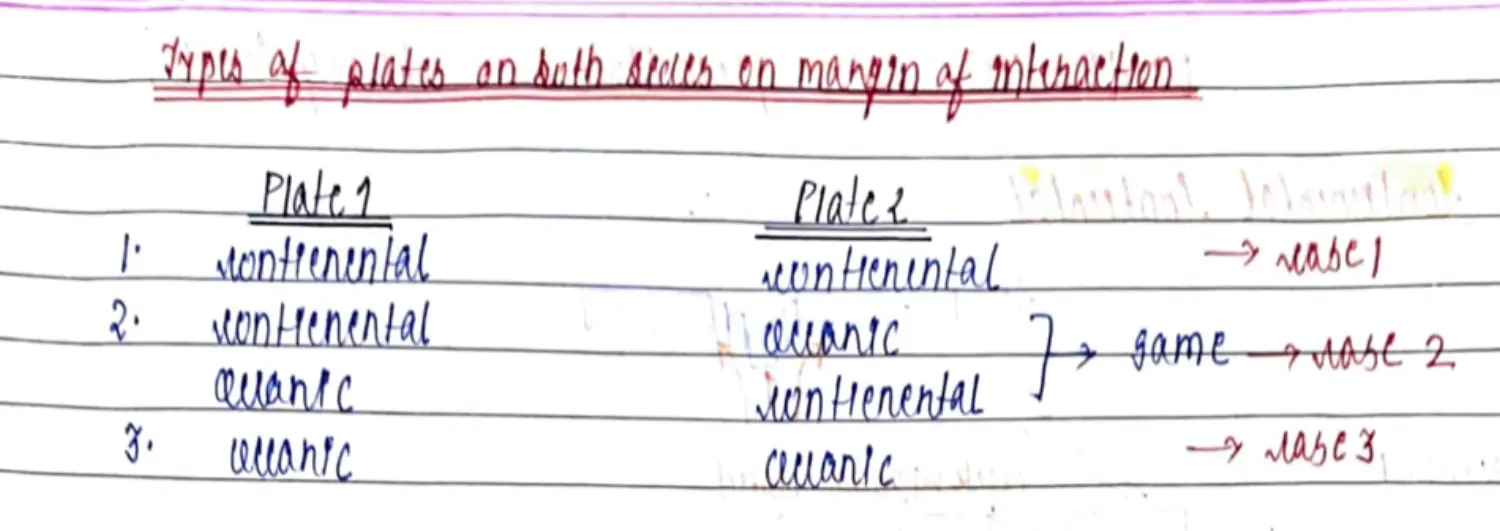 Types of plates on both sides on margin of interaction
Plate 1 Plate 2
1. continental continental → case 1
2. continental oceanic ] → same → case 2
oceanic continental
3. oceanic oceanic → case 3